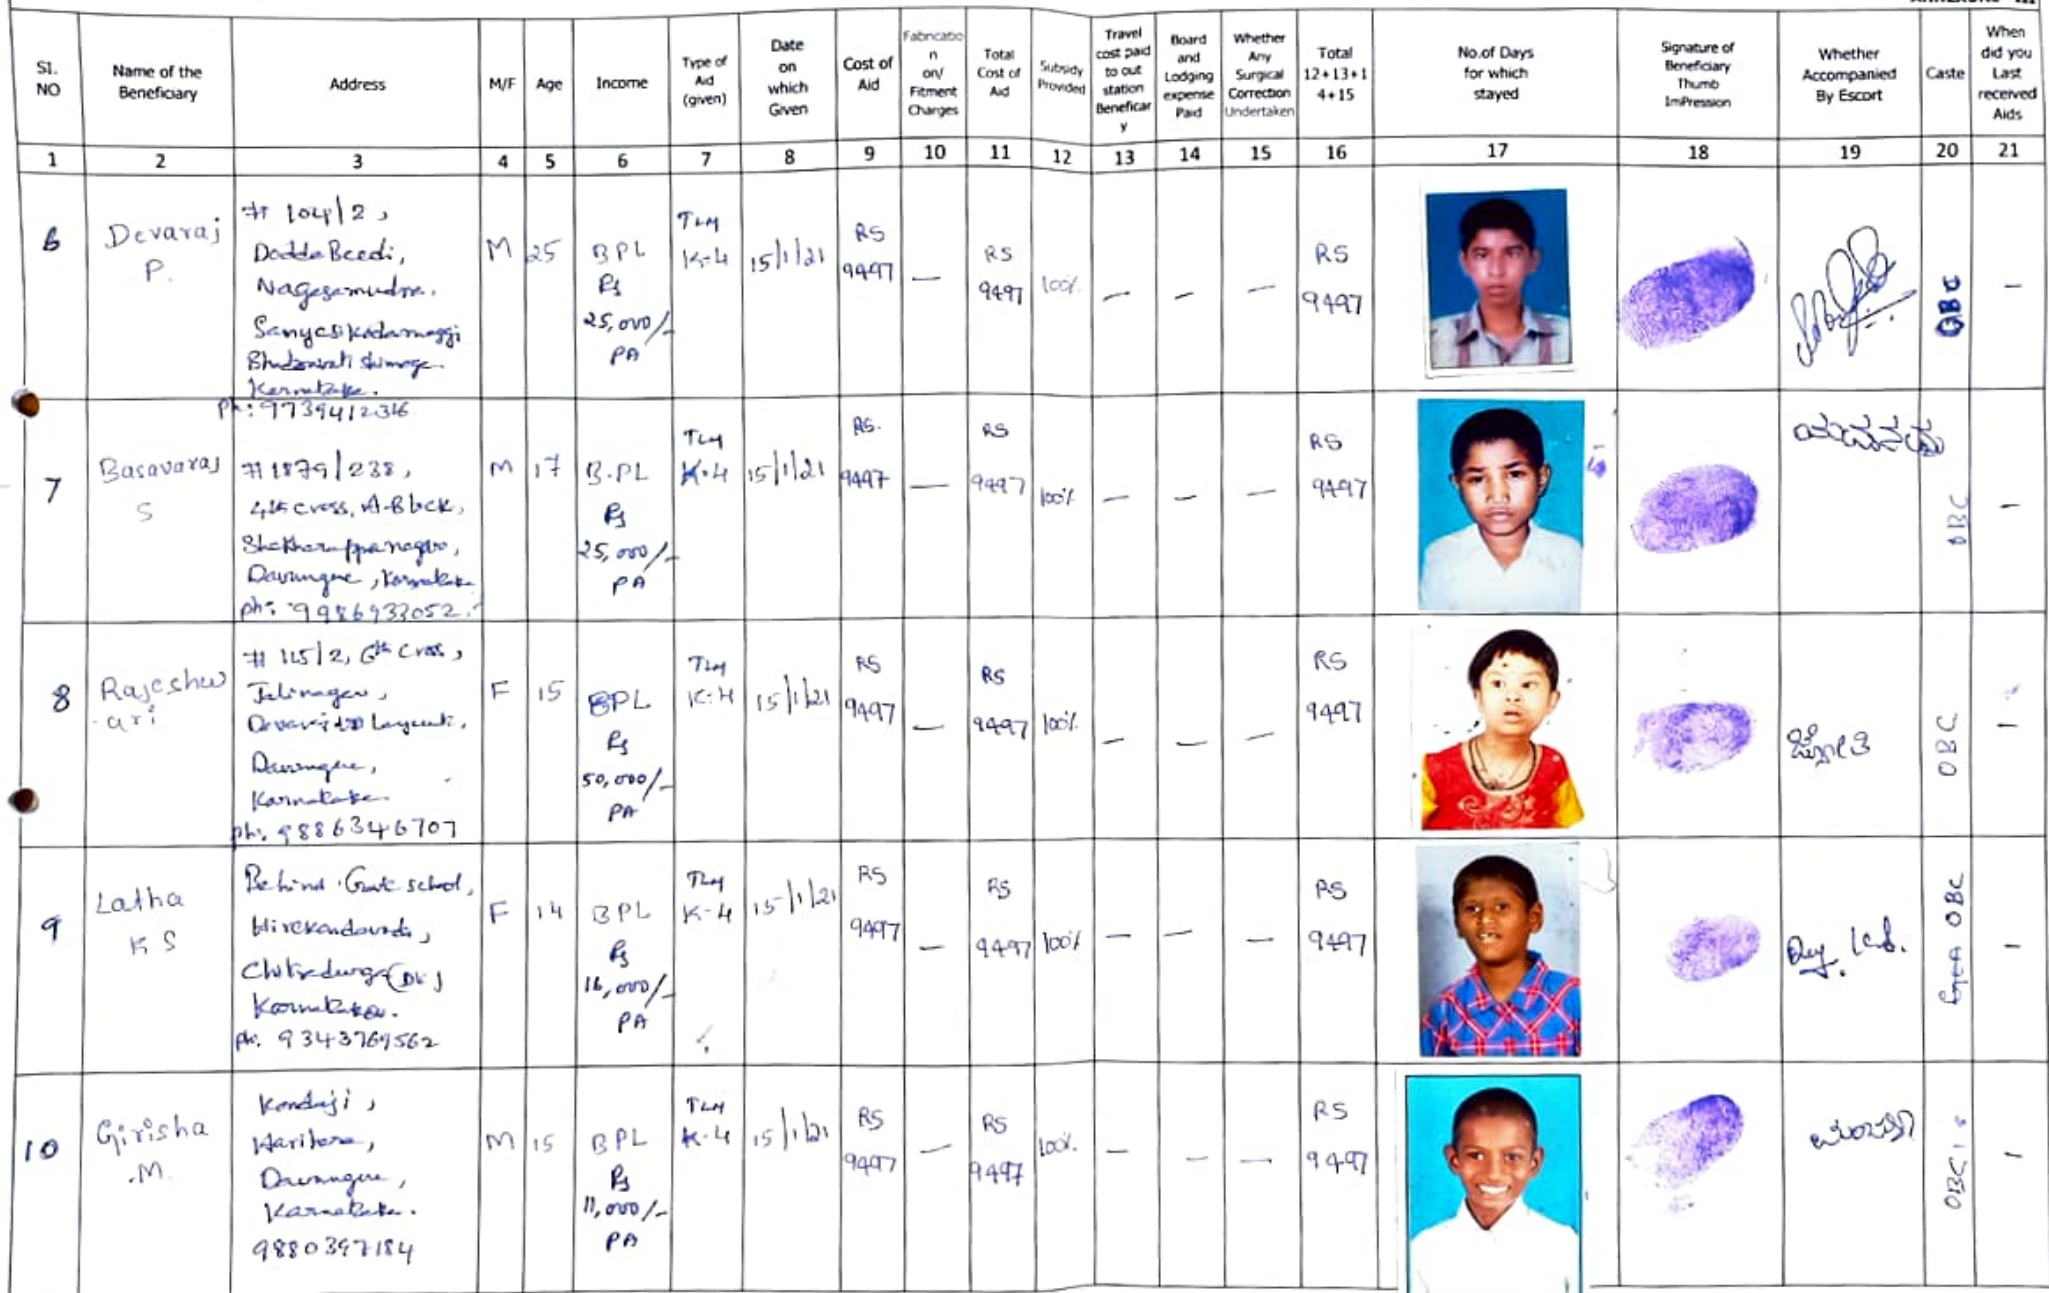 Sl.
NO
Name of the
Beneficiary
Address
M/F
Age
Income
Type of
Aid
(given)
Date
on
which
Given
Cost of
Aid
Fabricatio
n
on/
Fitment
Charges
Total
Cost of
Aid
Subsidy
Provided
Travel
cost paid
to out
station
Beneficar
y
Board
and
Lodging
expense
Paid
Whether
Any
Surgical
Correction
Undertaken
Total
12+13+1
4+15
No.of Days
for which
stayed
Signature of
Beneficiary
Thumb
ImPression
Whether
Accompanied
By Escort
Caste
When
did you
Last
received
Aids
1 2 3 4 5 6 7 8 9 10 11 12 13 14 15 16 17 18 19 20 21
6
Devaraj
P.
# 104/2,
Dodda Beedi,
Nagasamudra,
Sanyasikodamaggi
Bhadravati Shimoga
Karnataka.
Ph: 9739412316
M
25
BPL
Rs
25,000/-
PA
TLM
K-4
15/1/21
RS
9497
—
RS
9497
100%
—
—
—
RS
9497
OBC
—
7
Basavaraj
S
# 1879/238,
4th cross, A-Block,
Shekharappanagar,
Davangere, Karnataka
ph: 9986933052.
M
17
B.PL
Rs
25,000/-
PA
TLM
K-4
15/1/21
RS.
9497
—
RS
9497
100%
—
—
—
RS
9497
OBC
—
8
Rajeshw
-ari
# 115/2, 6th Cross,
Jalinagar,
Devaraj Layout,
Davangere,
Karnataka
ph: 9886346707
F
15
BPL
Rs
50,000/-
PA
TLM
K-4
15/1/21
RS
9497
—
RS
9497
100%
—
—
—
RS
9497
ಜ್ಯೋತಿ
OBC
—
9
Latha
K S
Behind Govt school,
Hirekandavadi,
Chitradurga (Dt)
Karnataka.
ph. 9343769562
F
14
BPL
Rs
16,000/-
PA
TLM
K-4
15/1/21
RS
9497
—
RS
9497
100%
—
—
—
RS
9497
OBC
—
10
Girisha
.M.
Kondaji,
Harihara,
Davangere,
Karnataka.
9880397184
M
15
BPL
Rs
11,000/-
PA
TLM
K-4
15/1/21
RS
9497
—
RS
9497
100%
—
—
—
RS
9497
OBC
—